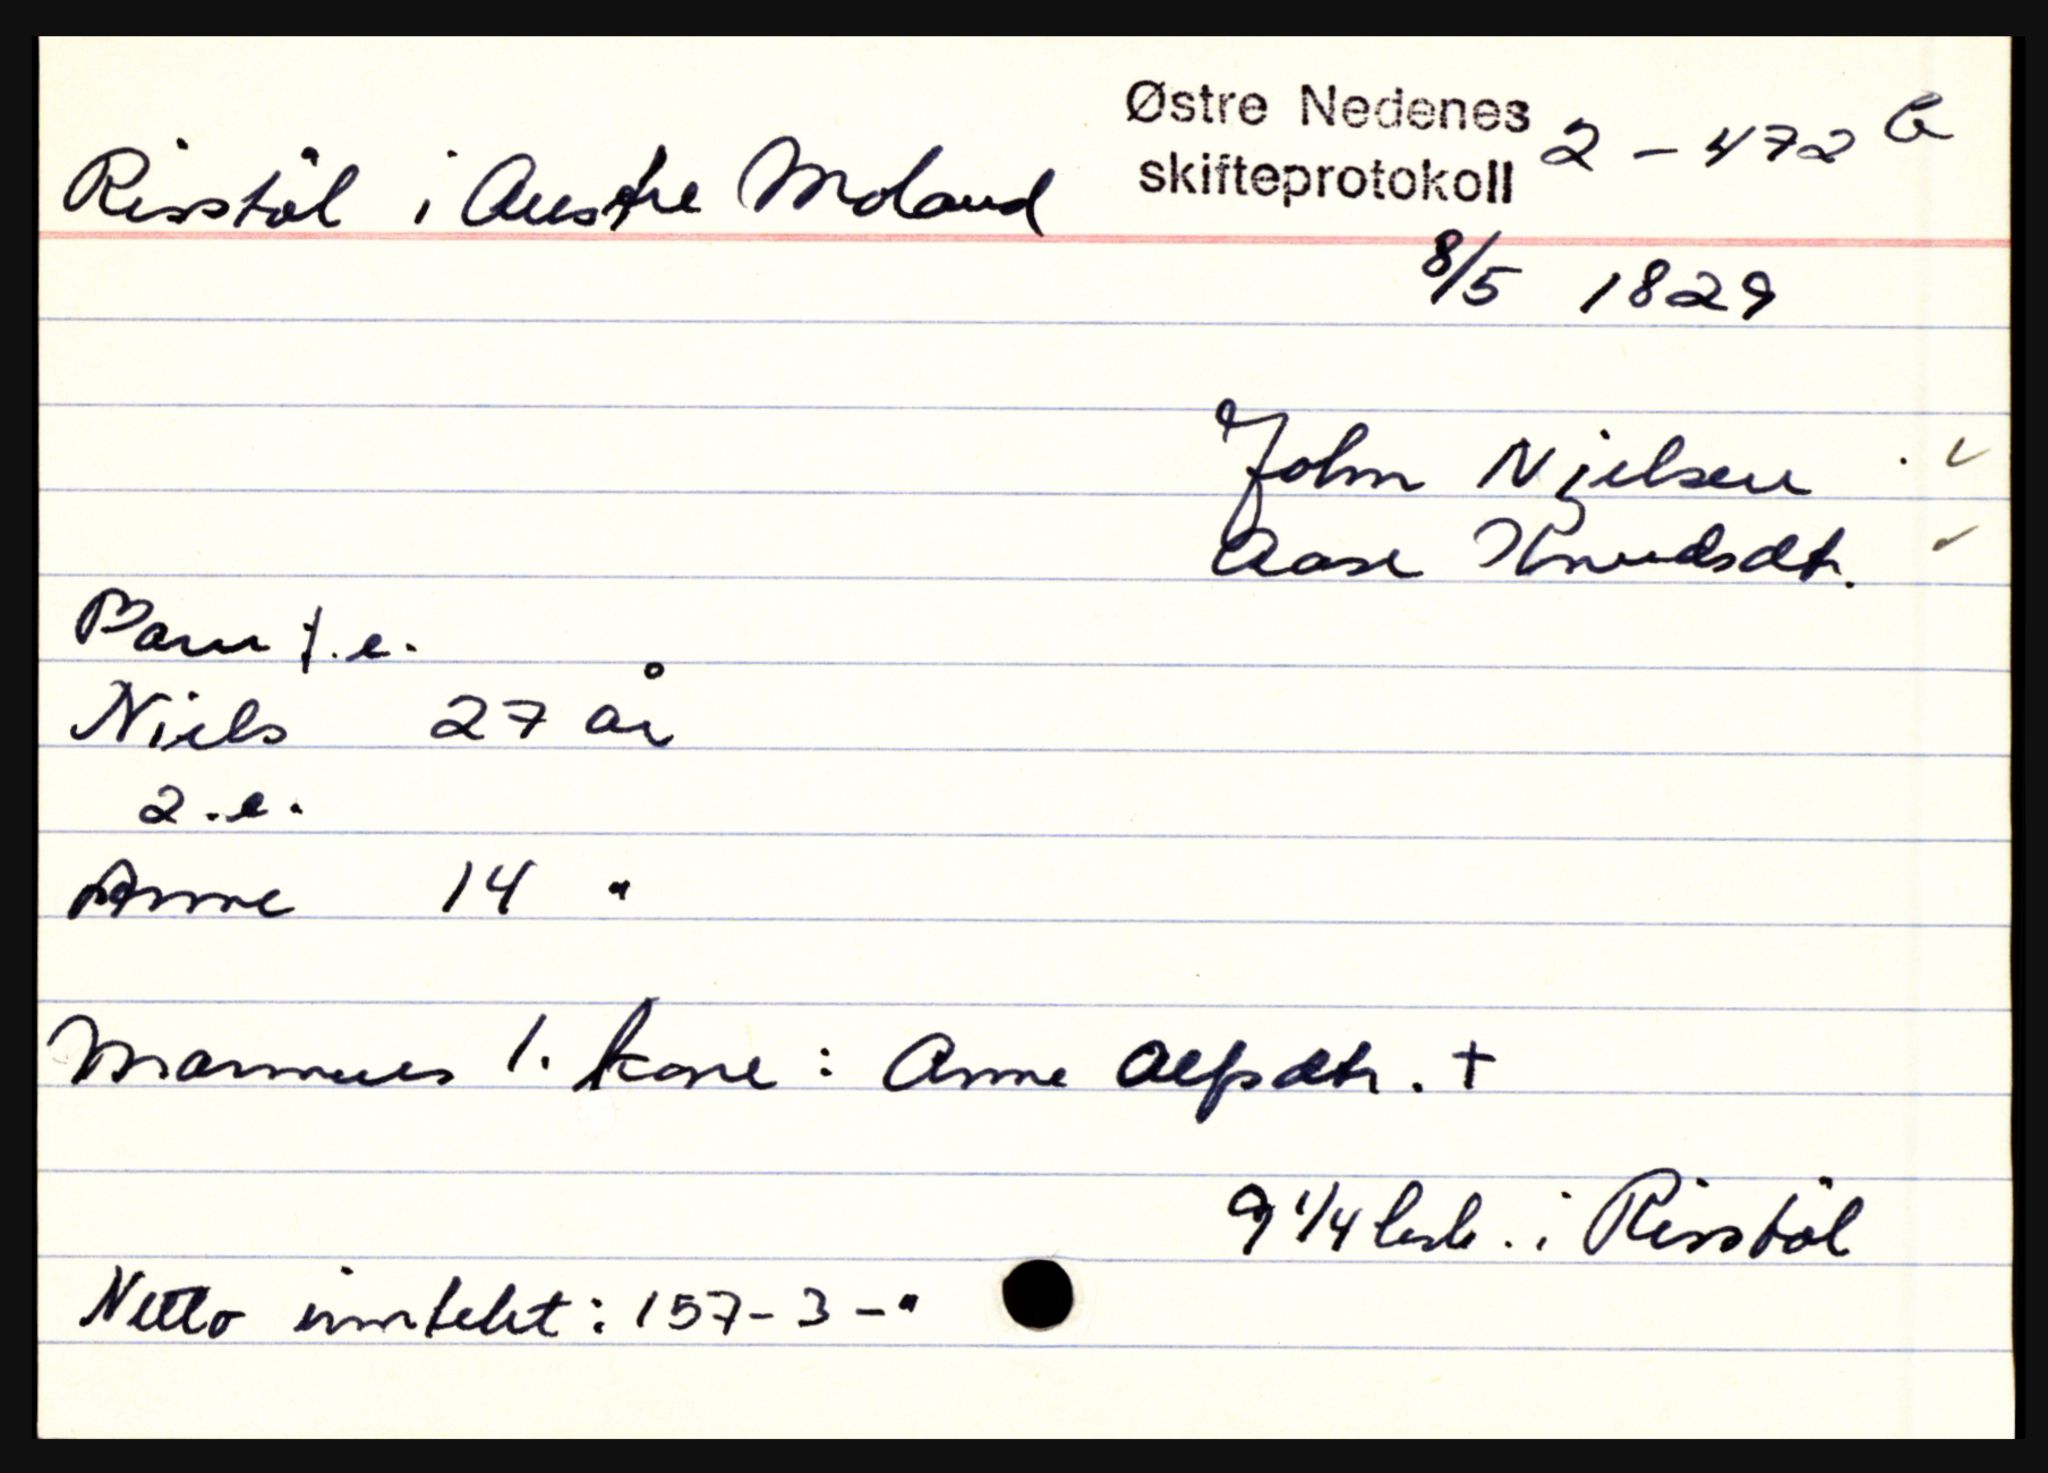 Østre Nedenes 2 - 472 b
Risstöl i Austre Moland skifteprotokoll
8/5 1829
John Njelsen
Aase Knudsdtr.
Barn f.e.
Niels 27 år
2.e.
Anne 14 "
Mannens 1. kone: Anne Alfsdtr. +
9 1/4 i Risstöl
Netto inntekt: 157 - 3 - "